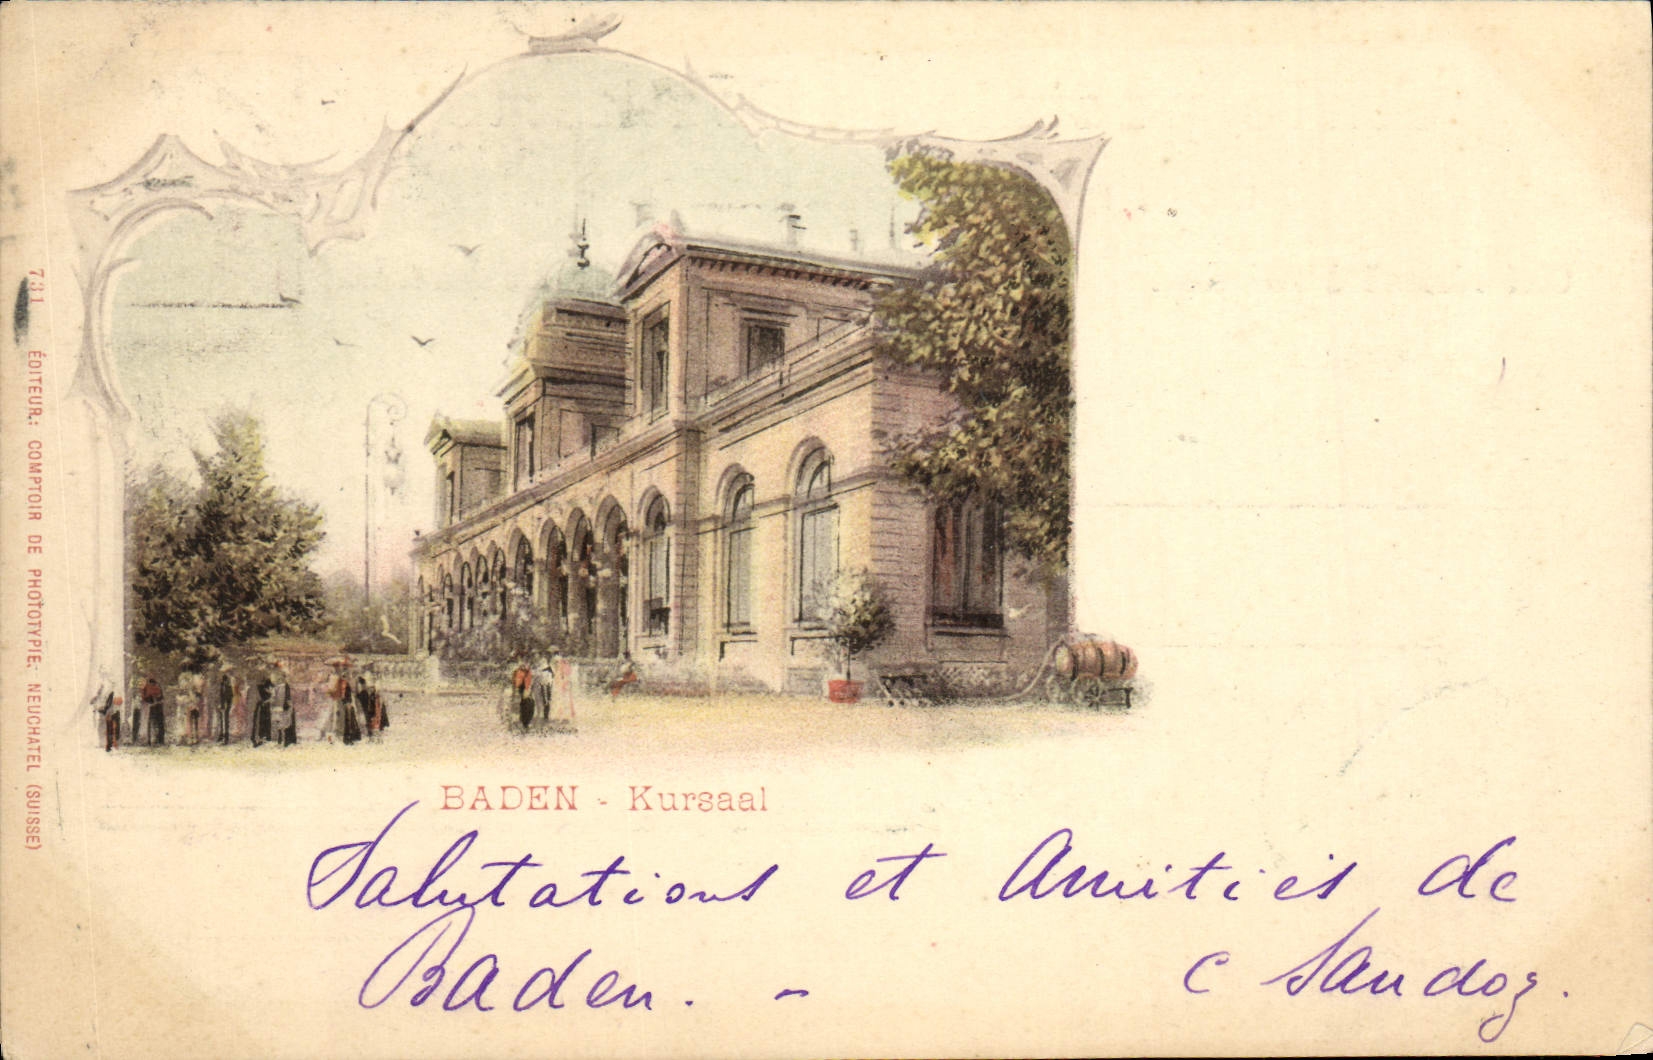 731 ÉDITEUR: COMPTOIR DE PHOTOTYPIE, NEUCHATEL (SUISSE)
BADEN - Kursaal
Salutations et Amitiés de
Baden. - C Sandoz.